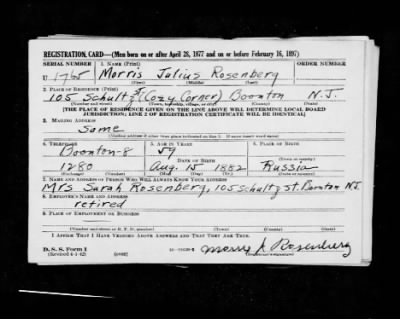 REGISTRATION CARD—(Men born on or after April 28, 1877 and on or before February 16, 1897)
SERIAL NUMBER 1. NAME (Print) ORDER NUMBER
U 1765 Morris Julius Rosenberg
(First) (Middle) (Last)
2. PLACE OF RESIDENCE (Print)
105 Schultz St (Cozy Corner) Boonton N.J.
(Number and street) (Town, township, village, or city) (County) (State)
[THE PLACE OF RESIDENCE GIVEN ON THE LINE ABOVE WILL DETERMINE LOCAL BOARD
JURISDICTION; LINE 2 OF REGISTRATION CERTIFICATE WILL BE IDENTICAL]
3. MAILING ADDRESS
Same
[Mailing address if other than place indicated on line 2. If same insert word same]
4. TELEPHONE 5. AGE IN YEARS 6. PLACE OF BIRTH
Boonton-8 59
DATE OF BIRTH (Town or county)
1280 Aug. 15 1882 Russia
(Exchange) (Number) (Mo.) (Day) (Yr.) (State or country)
7. NAME AND ADDRESS OF PERSON WHO WILL ALWAYS KNOW YOUR ADDRESS
Mrs Sarah Rosenberg, 105 Schultz St. Boonton N.J.
8. EMPLOYER'S NAME AND ADDRESS
retired
9. PLACE OF EMPLOYMENT OR BUSINESS
(Number and street or R. F. D. number) (Town) (County) (State)
I AFFIRM THAT I HAVE VERIFIED ABOVE ANSWERS AND THAT THEY ARE TRUE.
D. S. S. Form 1
(Revised 4-1-42) (over) Morris J. Rosenberg